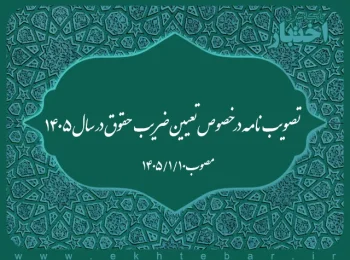 اختبار
تصویب نامه در خصوص تعیین ضریب حقوق در سال ۱۴۰۵
مصوب ۱۴۰۵/۱/۱۰
www.ekhtebar.ir